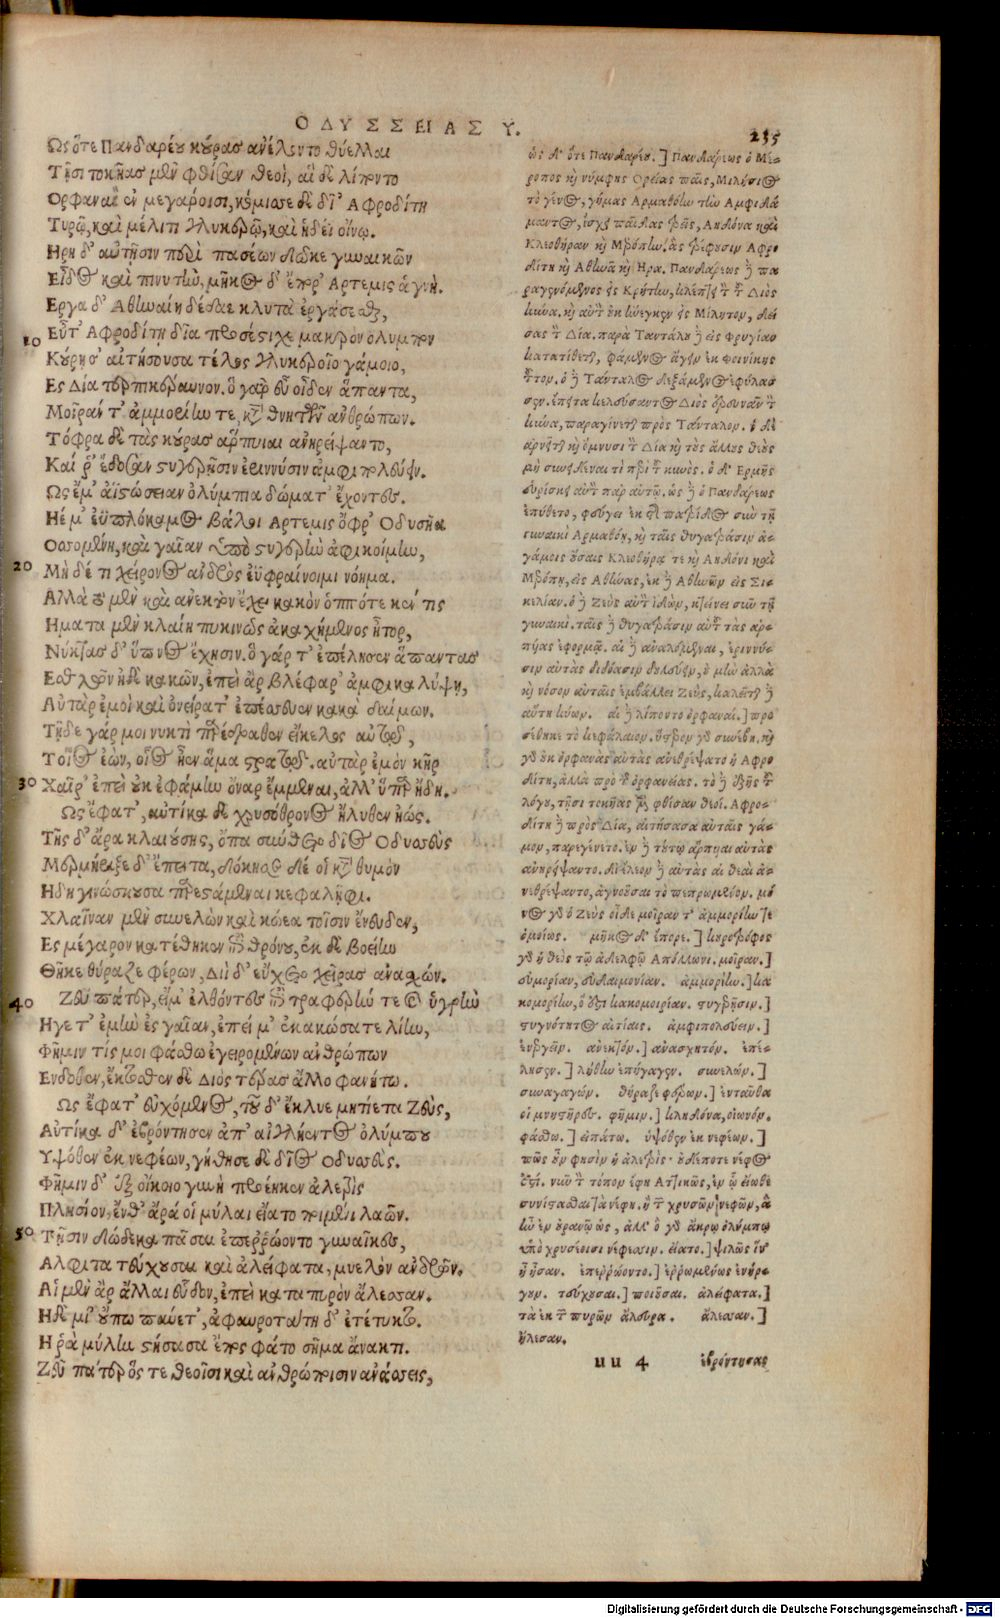 ΟΔΥΣΣΕΙΑΣ Υ.
235
Ως ὅτε Πανδαρέου κούρας ἀνέλοντο θύελλαι
Τῇσι τοκῆας μὲν φθίσαν θεοὶ, αἱ δὲ λίποντο
Ορφαναὶ ἐν μεγάροισι, κόμισε δὲ δῖ' Αφροδίτη
Τυρῷ, καὶ μέλιτι γλυκερῷ, καὶ ἡδέι οἴνῳ.
Ηρη δ' αὐτῇσιν περὶ πασέων δῶκε γυναικῶν
Εἶδος καὶ πινυτὴν, μῆκος δ' ἔπορ' Αρτεμις ἁγνή.
Εργα δ' Αθηναίη δέδαε κλυτὰ ἐργάζεσθαι,
10 Εὖτ' Αφροδίτη δῖα προσέστιχε μακρὸν ὄλυμπον
Κούρῃσ' αἰτήσουσα τέλος γλυκεροῖο γάμοιο,
Ες Δία τερπικέραυνον. ὁ γάρ τ' εὖ οἶδεν ἅπαντα,
Μοῖράν τ' ἀμμορίην τε, κατὰ θνητῶν ἀνθρώπων.
Τόφρα δὲ τὰς κούρας ἅρπυιαι ἀνηρείψαντο,
Καί ῥ' ἔδοσαν στυγερῇσιν ἐριννύσιν ἀμφιπολεύειν.
Ως ἔμ' ἀϊστώσειαν ὀλύμπια δώματ' ἔχοντες.
Ηέ μ' ἐϋπλόκαμος βάλοι Αρτεμις ὄφρ' Οδυσῆα
Οσσομένη, καὶ γαῖαν ὑπὸ στυγερὴν ἀφικοίμην,
20 Μὴ δέ τι χείρονος ἀνδρὸς ἐϋφραίνοιμι νόημα.
Αλλὰ τὸ μὲν καὶ ἀνεκτὸν ἔχει κακὸν ὁππότε κέν τις
Ηματα μὲν κλαίῃ πυκινῶς ἀκαχήμενος ἦτορ,
Νύκτας δ' ὕπνος ἔχησιν. ὁ γάρ τ' ἐπέλησεν ἅπαντας
Εσθλῶν ἠδὲ κακῶν, ἐπεὶ ἂρ βλέφαρ' ἀμφικαλύψῃ,
Αὐτὰρ ἐμοὶ καὶ ὀνείρατ' ἐπέσσευεν κακὰ δαίμων.
Τῇδε γάρ μοι νυκτὶ παρέδραθεν εἴκελος αὐτῷ,
Τοῖος ἐὼν, οἷος ᾖεν ἅμα στρατῷ. αὐτὰρ ἐμὸν κῆρ
30 Χαῖρ' ἐπεὶ οὐκ ἐφάμην ὄναρ ἔμμεναι, ἀλλ' ὕπαρ ἤδη.
Ως ἔφατ', αὐτίκα δὲ χρυσόθρονος ἤλυθεν ἠώς.
Τῆς δ' ἄρα κλαιούσης, ὄπα σύνθετο δῖος Οδυσσεὺς
Μερμήριξε δ' ἔπειτα, δόκησε δέ οἱ κατὰ θυμὸν
Ηδη γινώσκουσα παρεστάμεναι κεφαλῆφι.
Χλαῖναν μὲν συνελὼν καὶ κώεα τοῖσιν ἔνευδεν,
Ες μέγαρον κατέθηκεν ἐπὶ θρόνου, ἐκ δὲ βοείην
Θῆκε θύραζε φέρων, Διῒ δ' εὔχετο χεῖρας ἀνασχών.
40 Ζεῦ πάτερ, εἴ μ' ἐθέλοντες ἐπὶ τραφερήν τε καὶ ὑγρὴν
Ηγετ' ἐμὴν ἐς γαῖαν, ἐπεί μ' ἐκακώσατε λίην,
Φῆμιν τίς μοι φάσθω ἐγειρομένων ἀνθρώπων
Ενδοθεν, ἔκτοσθεν δὲ Διὸς τέρας ἄλλο φανήτω.
Ως ἔφατ' εὐχόμενος, τοῦ δ' ἔκλυε μητίετα Ζεὺς,
Αὐτίκα δ' ἐβρόντησεν ἀπ' αἰγλήεντος ὀλύμπου
Υψόθεν ἐκ νεφέων, γήθησε δὲ δῖος Οδυσσεύς.
Φῆμιν δ' ἐξ οἴκοιο γυνὴ προέηκεν ἀλετρὶς
Πλησίον, ἔνθ' ἄρά οἱ μύλαι εἵατο ποιμένι λαῶν.
50 Τῇσιν δώδεκα πᾶσαι ἐπερρώοντο γυναῖκες,
Αλφιτα τεύχουσαι καὶ ἀλείφατα, μυελὸν ἀνδρῶν.
Αἱ μὲν ἂρ ἄλλαι εὗδον, ἐπεὶ κατὰ πυρὸν ἄλεσσαν.
Ηδὲ μί' οὔπω παύετ', ἀφαυροτάτη δ' ἐτέτυκτο.
Η ῥα μύλην στήσασα ἔπος φάτο σῆμα ἄνακτι.
Ζεῦ πάτερ ὅς τε θεοῖσι καὶ ἀνθρώποισιν ἀνάσσεις,
ὡς δ' ὅτε Πανδαρέου.] Πανδάρεως ὁ Μέ-
ροπος καὶ νύμφης Ορείας παῖς, Μιλήσιος
τὸ γένος, γήμας Αρμαθόην τὴν Αμφιδά-
μαντος, ἴσχει παῖδας τρεῖς, Αηδόνα καὶ
Κλεοθήραν καὶ Μερόπην, ἃς τρέφουσιν Αφρο
δίτη καὶ Αθηνᾶ καὶ Ηρα. Πανδάρεως δὲ πα
ραγενόμενος εἰς Κρήτην, κλέπτει τὸν τοῦ Διὸς
κύνα. καὶ αὐτὸν οὐκ ἤνεγκεν εἰς Μίλητον, δεί
σας τὸν Δία. παρὰ Ταντάλῳ δὲ εἰς Φρυγίαν
κατατίθεται, φάμενος ἄγειν ἐκ φοινίκης
τοῦτον. ὁ δὲ Τάνταλος δεξάμενος ἐφύλασ
σεν. ἔπειτα κελεύσαντος Διὸς ἐρευνᾶν τὸν
κύνα, παραγίνεται πρὸς Τάνταλον. ὁ δὲ
ἀρνεῖται καὶ ὄμνυσι τὸν Δία καὶ τοὺς ἄλλους θεοὺς
μὴ συνειδέναι τὸ περὶ τοῦ κυνός. ὁ δ' Ερμῆς
εὑρίσκει αὐτὸν παρ' αὐτῷ. ὡς δὲ ὁ Πανδάρεως
ἐπύθετο, φεύγει ἐκ τῆς πατρίδος σὺν τῇ
γυναικὶ Αρμαθόῃ, καὶ ταῖς θυγατράσιν ἀ-
γάμοις οὔσαις Κλεοθήρᾳ τε καὶ Αηδόνι καὶ
Μερόπῃ, εἰς Αθήνας, ἐκ δὲ Αθηνῶν εἰς Σι-
κελίαν. ὁ δὲ Ζεὺς αὐτὸν ἰδὼν, κτείνει σὺν τῇ
γυναικί. ταῖς δὲ θυγατράσιν αὐτοῦ τὰς ἁρ-
πυίας ἐφορμᾷ. αἱ δὲ ἀνελόμεναι, ἐριννύ-
σιν αὐτὰς διδόασιν δουλεύειν, οὐ μὴν ἀλλὰ
καὶ νόσον αὐταῖς ἐμβάλλει Ζεὺς, καλεῖται δὲ
αὕτη κύων. αἱ δὲ λίποντο ὀρφαναί.] προ
σέθηκε τὸ κεφάλαιον. ὕστερον γὰρ συνέβη, καὶ
γὰρ οὐκ ὀρφανὰς αὐτὰς ἀνεθρέψατο ἡ Αφρο
δίτη, ἀλλὰ πρὸ τῆς ὀρφανείας. τὸ δὲ ἑξῆς τοῦ
λόγου, τῇσι τοκῆας μὲν φθίσαν θεοί. Αφρο-
δίτη δὲ πρὸς Δία, αἰτήσασα αὐταῖς γά-
μον, παρεγένετο. ἐν δὲ τούτῳ ἅρπυιαι αὐτὰς
ἀνηρείψαντο.
ὁμοίως. μῆκος δ' ἔπορε.] κουροτρόφος
γὰρ ἡ θεὸς τῷ ἀδελφῷ Απόλλωνι. μοῖραν.]
εὐμορίαν, εὐδαιμονίαν. ἀμμορίην.] κα
κομορίην, ὅ ἐστι κακομοιρίαν. στυγερῇσιν.]
στυγνότητος αἰτίαις. ἀμφιπολεύειν.]
ἐνεργεῖν. ἀνεκτόν.] ἀνασχητόν. ἐπέ-
λησεν.] λήθην ἐπήγαγεν. συνελών.]
συναγαγών. θύραζε φέρων.] ἐνταῦθα
οἱ μνηστῆρες. φῆμιν.] κληδόνα, οἰωνόν.
φάσθω.] εἰπάτω. ὑψόθεν ἐκ νεφέων.]
πῶς οὖν φησὶν ἡ ἀλετρὶς. οὐδέποτε νέφος
ὑπὸ χρυσέοισι νέφεσσιν. εἵατο.] ψιλῶς ἵν'
ᾖ ἦσαν. ἐπερρώοντο.] ἐρρωμένως ἐνήρ-
γουν. τεύχουσαι.] ποιοῦσαι. ἀλείφατα.]
τὰ ἐκ τῶν πυρῶν ἄλευρα. ἄλεσσαν.]
ἤλεσαν.
uu 4
ἐβρόντησας
Digitalisierung gefördert durch die Deutsche Forschungsgemeinschaft - DFG